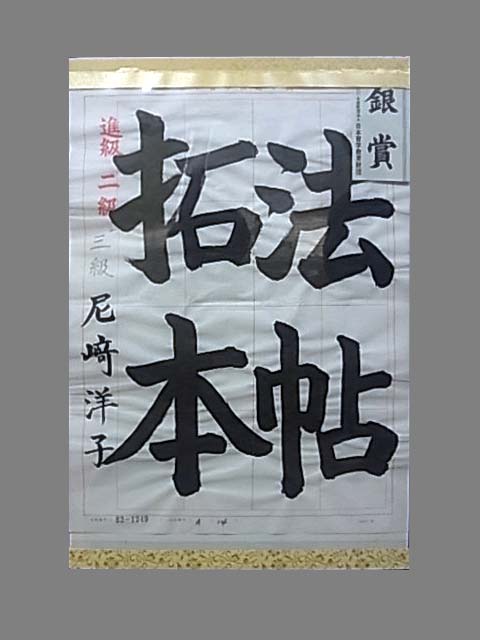 銀賞
日本習字教育財団
法帖
拓本
進級 二級
三級
尼﨑洋子
83-1349
A 14